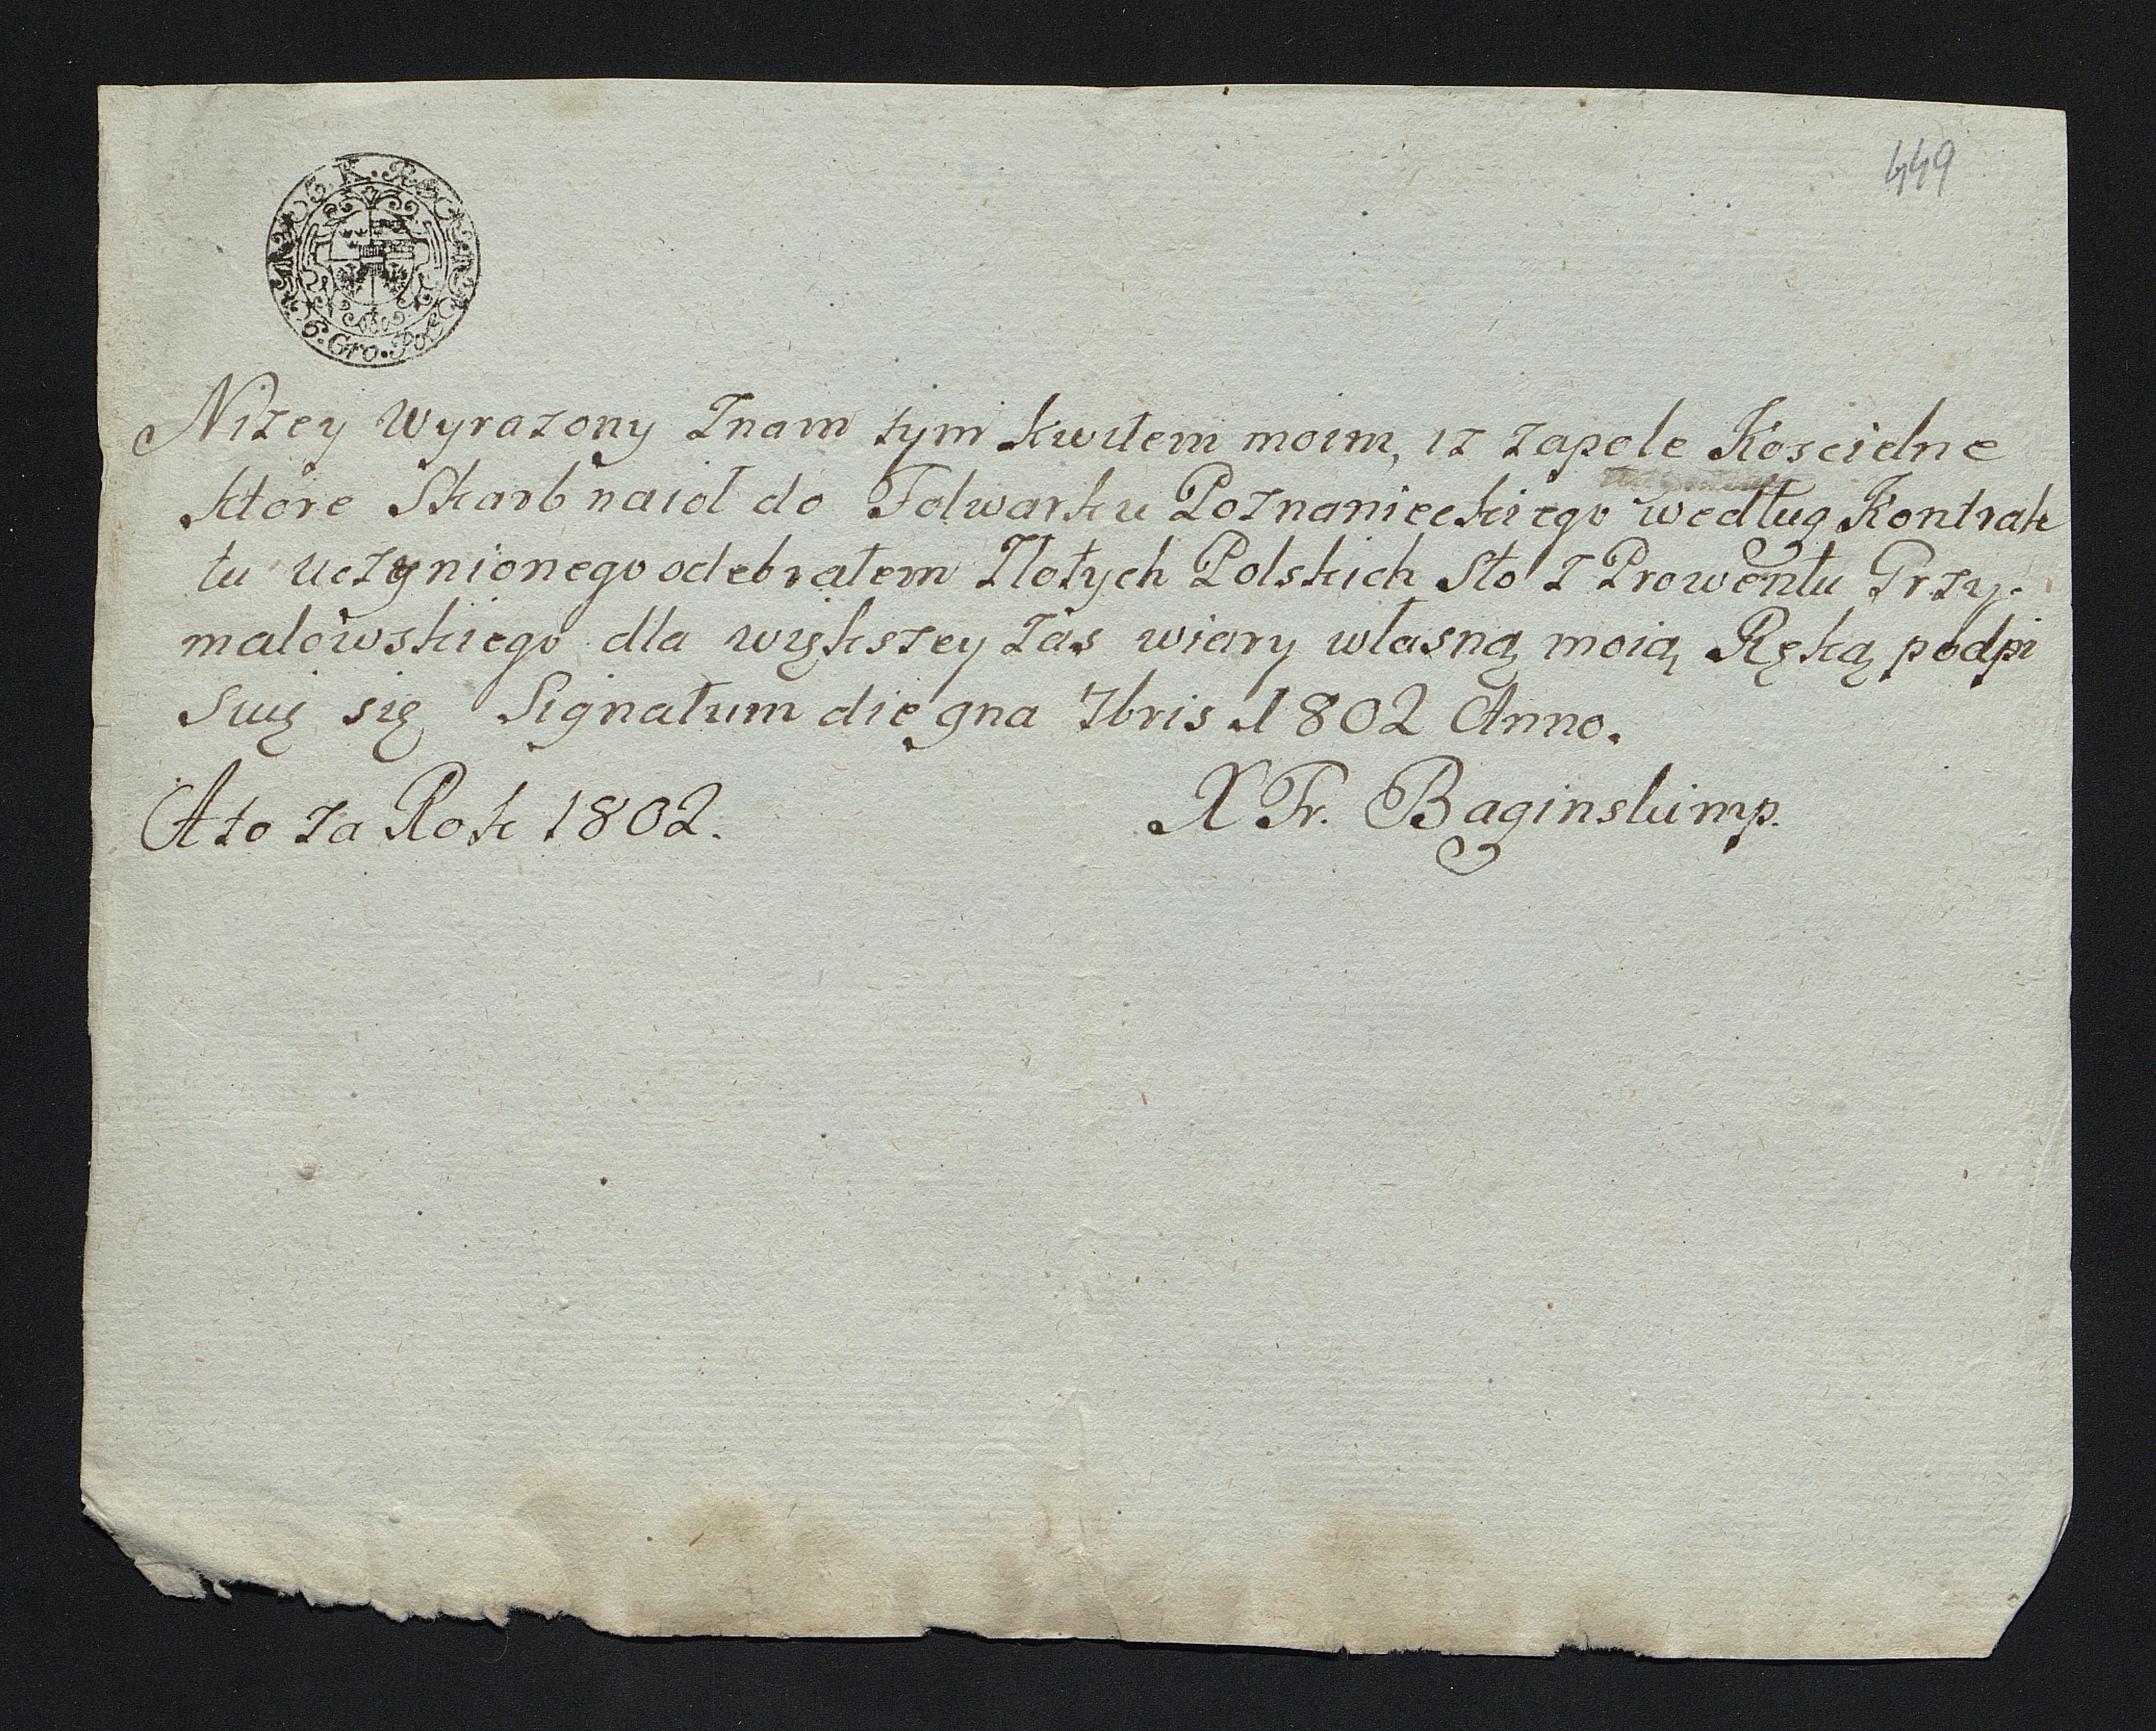 449
6. Gro. Pol
Nizey Wyrazony Znam tym kwitem moim, iz zapole Koscielne
ktore Skarb naiol do Folwarku Poznanieckiego według Kontrak
tu uczynionego odebrałem Złotych Polskich Sto z Prowentu Przy-
małowskiego dla większey zas wiary własną moią Ręką podpi
suię się Signatum die 9na 7bris 1802 Anno.
A to za Rok 1802.
X Fr. Baginski mp.